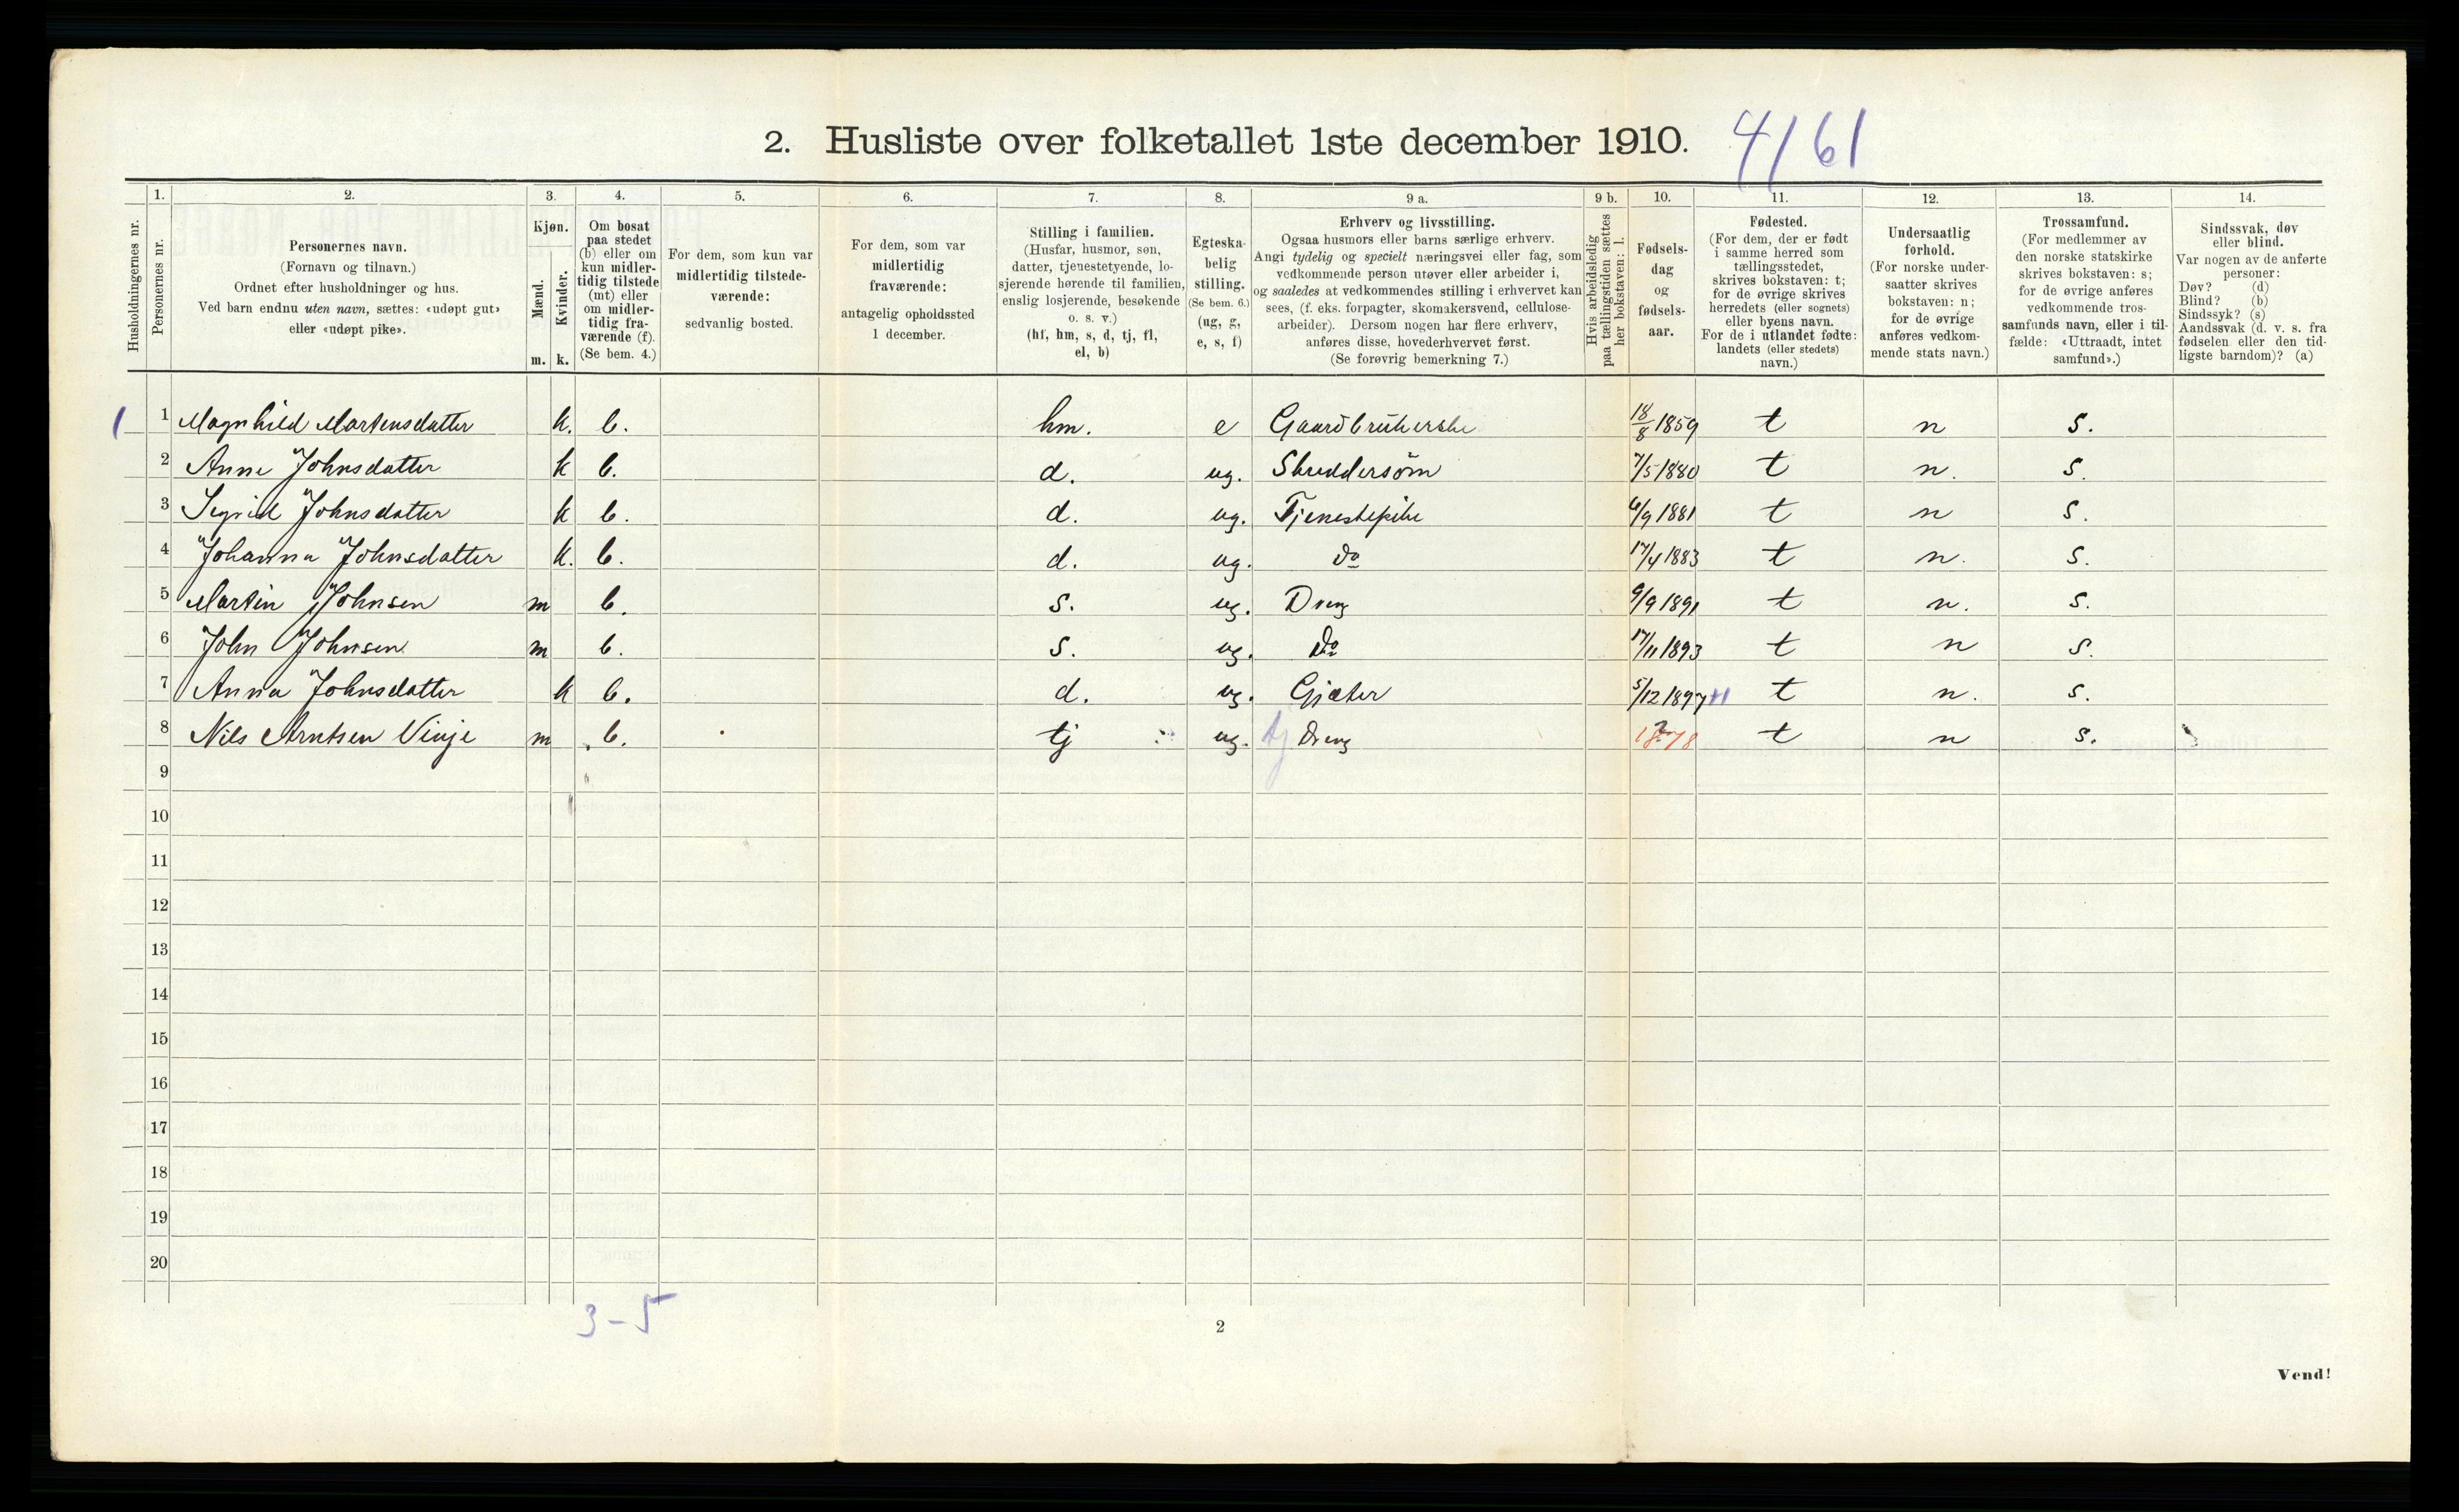 2. Husliste over folketallet 1ste december 1910. 4/61
1. 2. 3. 4. 5. 6. 7. 8. 9 a. 9 b. 10. 11. 12. 13. 14.
Husholdningernes nr.
Personernes nr.
Personernes navn.
(Fornavn og tilnavn.)
Ordnet efter husholdninger og hus.
Ved barn endnu uten navn, sættes: «udøpt gut»
eller «udøpt pike».
Kjøn.
Mænd.
Kvinder.
m. k.
Om bosat
paa stedet
(b) eller om
kun midler-
tidig tilstede
(mt) eller
om midler-
tidig fra-
værende (f).
(Se bem. 4.)
For dem, som kun var
midlertidig tilstede-
værende:
sedvanlig bosted.
For dem, som var
midlertidig
fraværende:
antagelig opholdssted
1 december.
Stilling i familien.
(Husfar, husmor, søn,
datter, tjenestetyende, lo-
sjerende hørende til familien,
enslig losjerende, besøkende
o. s. v.)
(hf, hm, s, d, tj, fl,
el, b)
Egteska-
belig
stilling.
(Se bem. 6.)
(ug, g,
e, s, f)
Erhverv og livsstilling.
Ogsaa husmors eller barns særlige erhverv.
Angi tydelig og specielt næringsvei eller fag, som
vedkommende person utøver eller arbeider i,
og saaledes at vedkommendes stilling i erhvervet kan
sees, (f. eks. forpagter, skomakersvend, cellulose-
arbeider). Dersom nogen har flere erhverv,
anføres disse, hovederhvervet først.
(Se forøvrig bemerkning 7.)
Hvis arbeidsledig
paa tællingstiden sættes
her bokstaven: l.
Fødsels-
dag
og
fødsels-
aar.
Fødested.
(For dem, der er født
i samme herred som
tællingsstedet,
skrives bokstaven: t;
for de øvrige skrives
herredets (eller sognets)
eller byens navn.
For de i utlandet fødte:
landets (eller stedets)
navn.)
Undersaatlig
forhold.
(For norske under-
saatter skrives
bokstaven: n;
for de øvrige
anføres vedkom-
mende stats navn.)
Trossamfund.
(For medlemmer av
den norske statskirke
skrives bokstaven: s;
for de øvrige anføres
vedkommende tros-
samfunds navn, eller i til-
fælde: «Uttraadt, intet
samfund».)
Sindssvak, døv
eller blind.
Var nogen av de anførte
personer:
Døv? (d)
Blind? (b)
Sindssyk? (s)
Aandssvak (d. v. s. fra
fødselen eller den tid-
ligste barndom)? (a)
1 1 Magnhild Martensdatter k. b. hm. e Gaardbrukerske 18/8 1859 t n s.
2 Anne Johnsdatter k b. d. ug. Skreddersøm 7/5 1880 t n. s.
3 Sigrid Johnsdatter k b. d. ug. Tjenestepike 6/9 1881 t n s.
4 Johanna Johnsdatter k. b. d. ug. do 17/4 1883 t n. s.
5 Martin Johnsen m b. s. ug. Dreng 9/9 1891 t n. s.
6 John Johnsen m b. s. ug. Do 17/11 1893 t n s.
7 Anna Johnsdatter k b. d. ug. Gjæter 5/12 1897 t n. s.
8 Nils Arntsen Vinje m b. tj ug. tj Dreng 1878 t n s.
9
10
11
12
13
14
15
16
17
18
19
20
3-5
2
Vend!